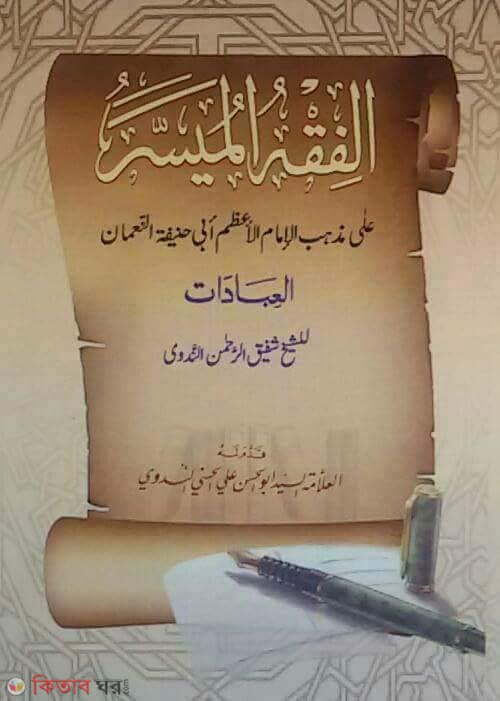 الفِقْهُ المُيَسَّرُ
علٰى مذہب الإمام الأعظم أبي حنيفة النعمان
العِبَادَات
للشيخ شفيق الرَّحمٰن النَّدوى
قَدَّمَ لَهُ
العلّامة السيّد ابو الحسن علي الحسني الندوي
কিতাব ঘর.com